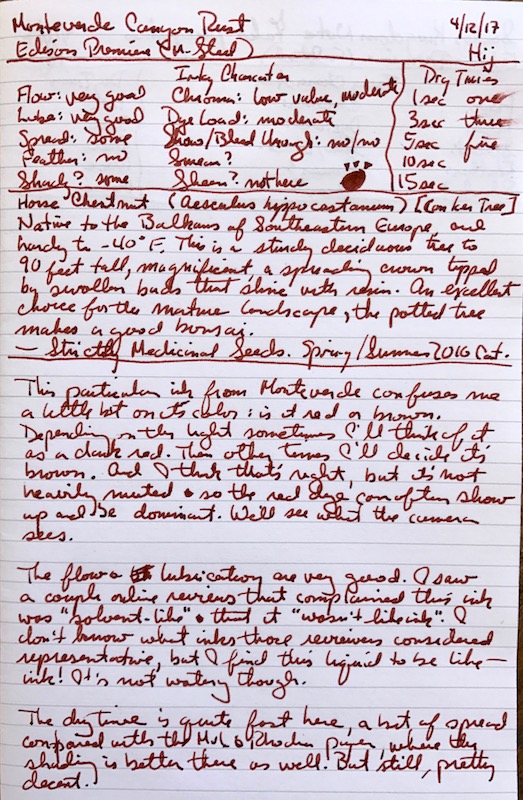 Monteverde Canyon Rust 4/12/17
Edison Premiere (M-Steel) Hij
Inky Character Dry Times
Flow: very good Chroma: low value, moderate 1 sec one
Lube: very good Dye Load: moderate 3 sec three
Spread: some Show/Bleed through: no/no 5 sec five
Feather: no Smear? 10 sec
Shady? some Sheen? not here 15 sec
Horse Chestnut (Aesculus hippocastanum) [Conker Tree]
Native to the Balkans of Southeastern Europe, and
hardy to -40°F. This is a sturdy deciduous tree to
90 feet tall, magnificent, a spreading crown tipped
by swollen buds that shine with resin. An excellent
choice for the mature landscape, the potted tree
makes a good bonsai.
— Strictly Medicinal Seeds. Spring/Summer 2016 Cat.
This particular ink from Monteverde confuses me
a little bit on its color: is it red or brown.
Depending on the light sometimes I'll think of it
as a dark red. Then other times I'll decide it's
brown. And I think that's right, but it's not
heavily muted so the red dye can often show
up and be dominant. We'll see what the camera
sees.
The flow & lubrication are very good. I saw
a couple online reviews that complained this ink
was "solvent-like" that it "wasn't like ink". I
don't know what inks those reviewers considered
representative, but I find this liquid to be like—
ink! It's not watery though.
The dry time is quite fast here, a bit of spread
compared with the Rhodia paper, where the
shading is better there as well. But still, pretty
decent.